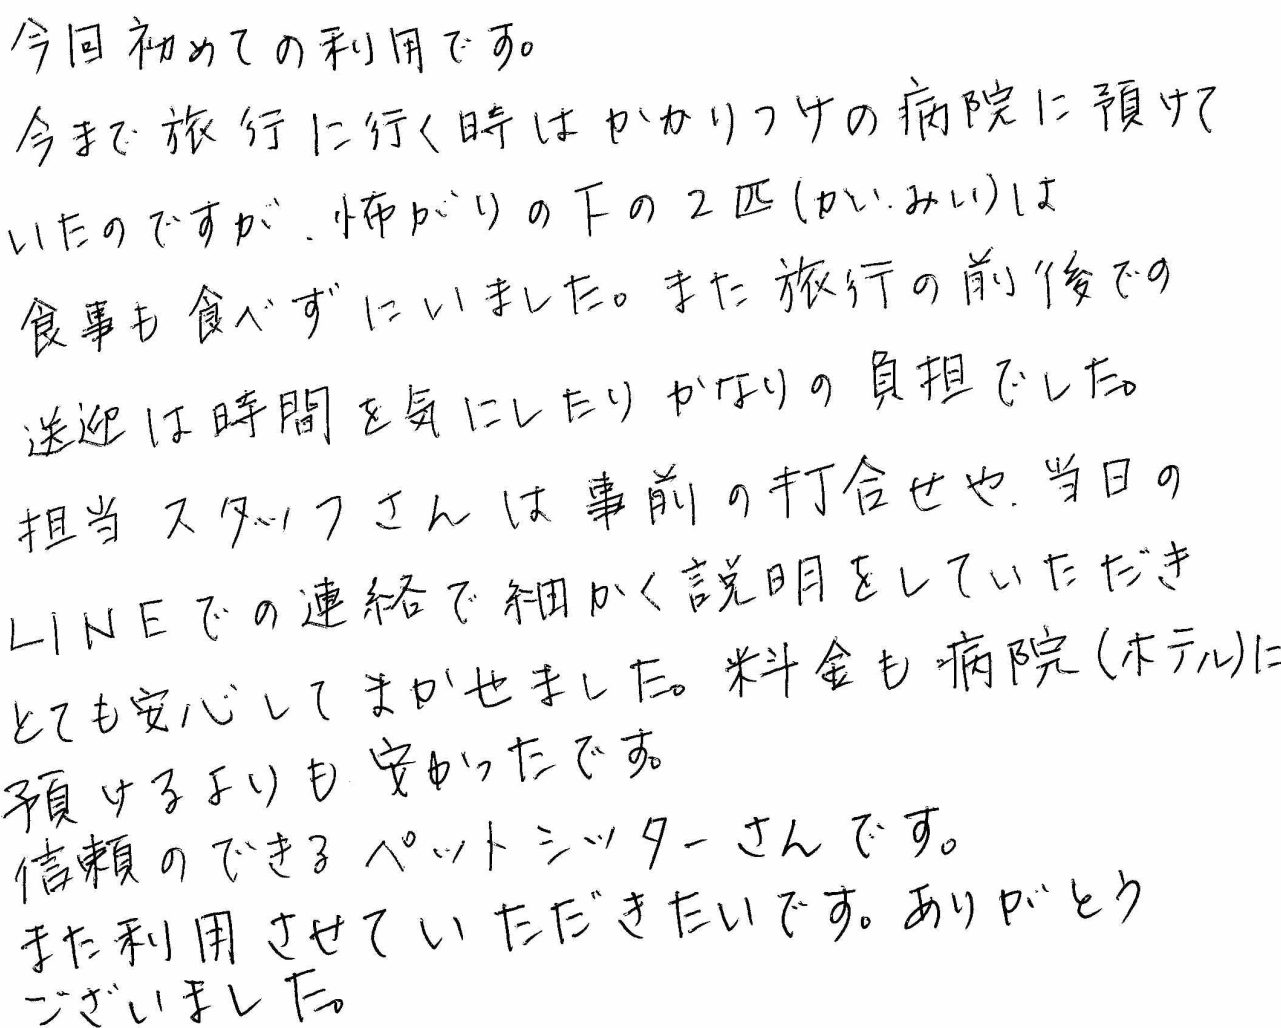 今回初めての利用です。
今まで旅行に行く時はかかりつけの病院に預けて
いたのですが、怖がりの下の2匹(かい・みい)は
食事も食べずにいました。また旅行の前後での
送迎は時間を気にしたりかなりの負担でした。
担当スタッフさんは事前の打合せや、当日の
LINEでの連絡で細かく説明をしていただき
とても安心してまかせました。料金も病院(ホテル)に
預けるよりも安かったです。
信頼のできるペットシッターさんです。
また利用させていただきたいです。ありがとう
ございました。